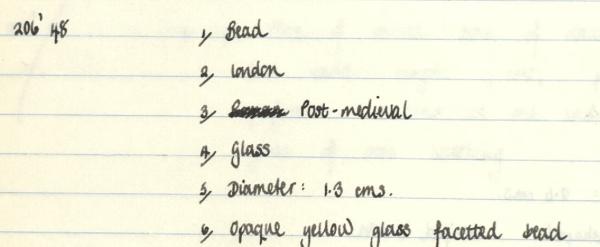 206' 48 1, Bead
2, London
3, Roman Post-medieval
4, Glass
5, Diameter: 1.3 cms.
6, Opaque yellow glass facetted bead